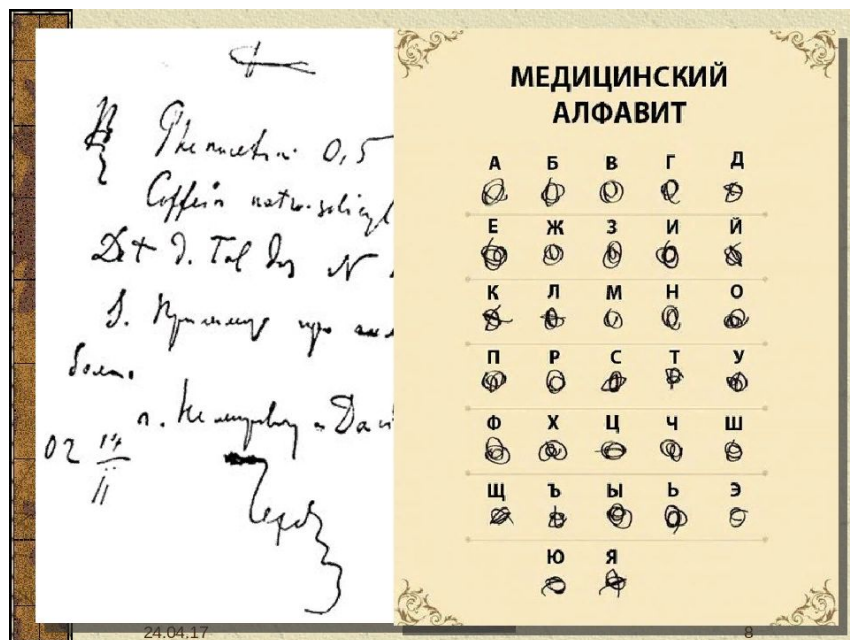 Phenacetin 0,5
Coffein natro-salicyl
Det D. Tal dos N
S.
боли.
г. Немировичу-Данч
02 14
II
Чехов
МЕДИЦИНСКИЙ
АЛФАВИТ
А Б В Г Д
Е Ж З И Й
К Л М Н О
П Р С Т У
Ф Х Ц Ч Ш
Щ Ъ Ы Ь Э
Ю Я
24.04.17
8